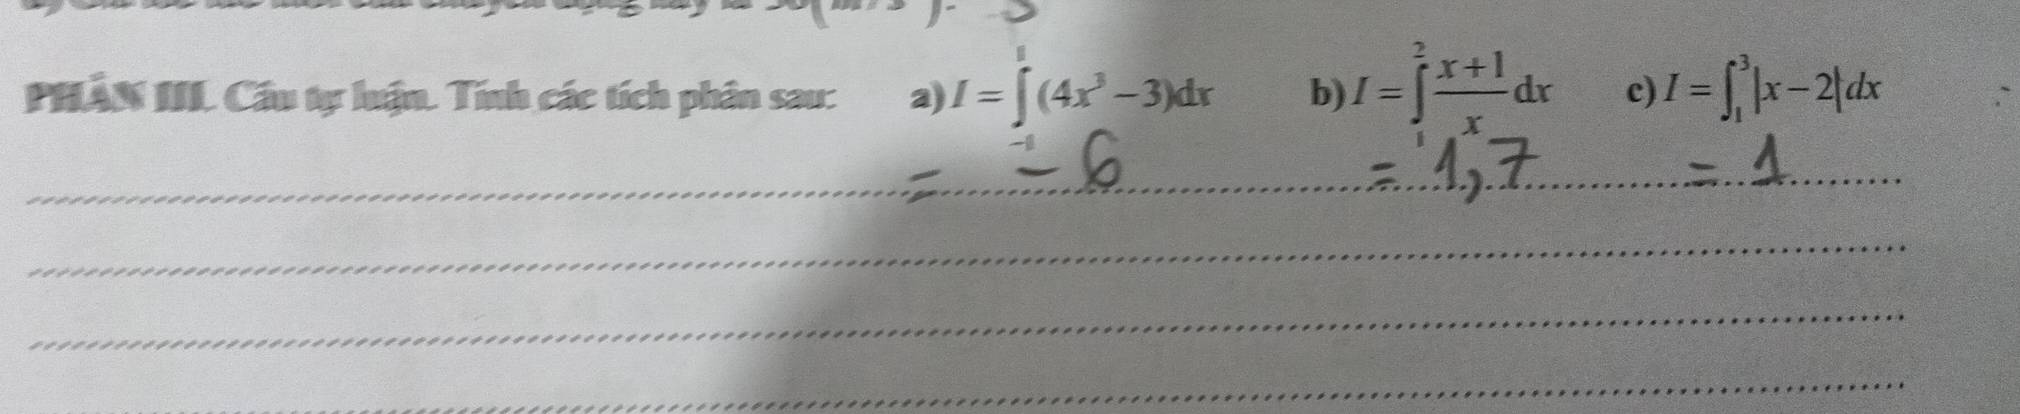 PHẦN III. Câu tự luận. Tính các tích phân sau: a) I = ∫₋₁¹ (4x³ − 3)dx b) I = ∫₁² (x+1)/x dx c) I = ∫₁³ |x − 2| dx
= −6 = 1,7 = 1